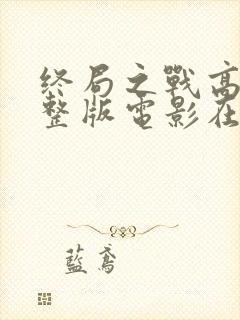 終局之戰高
整版電影在
藍鳶